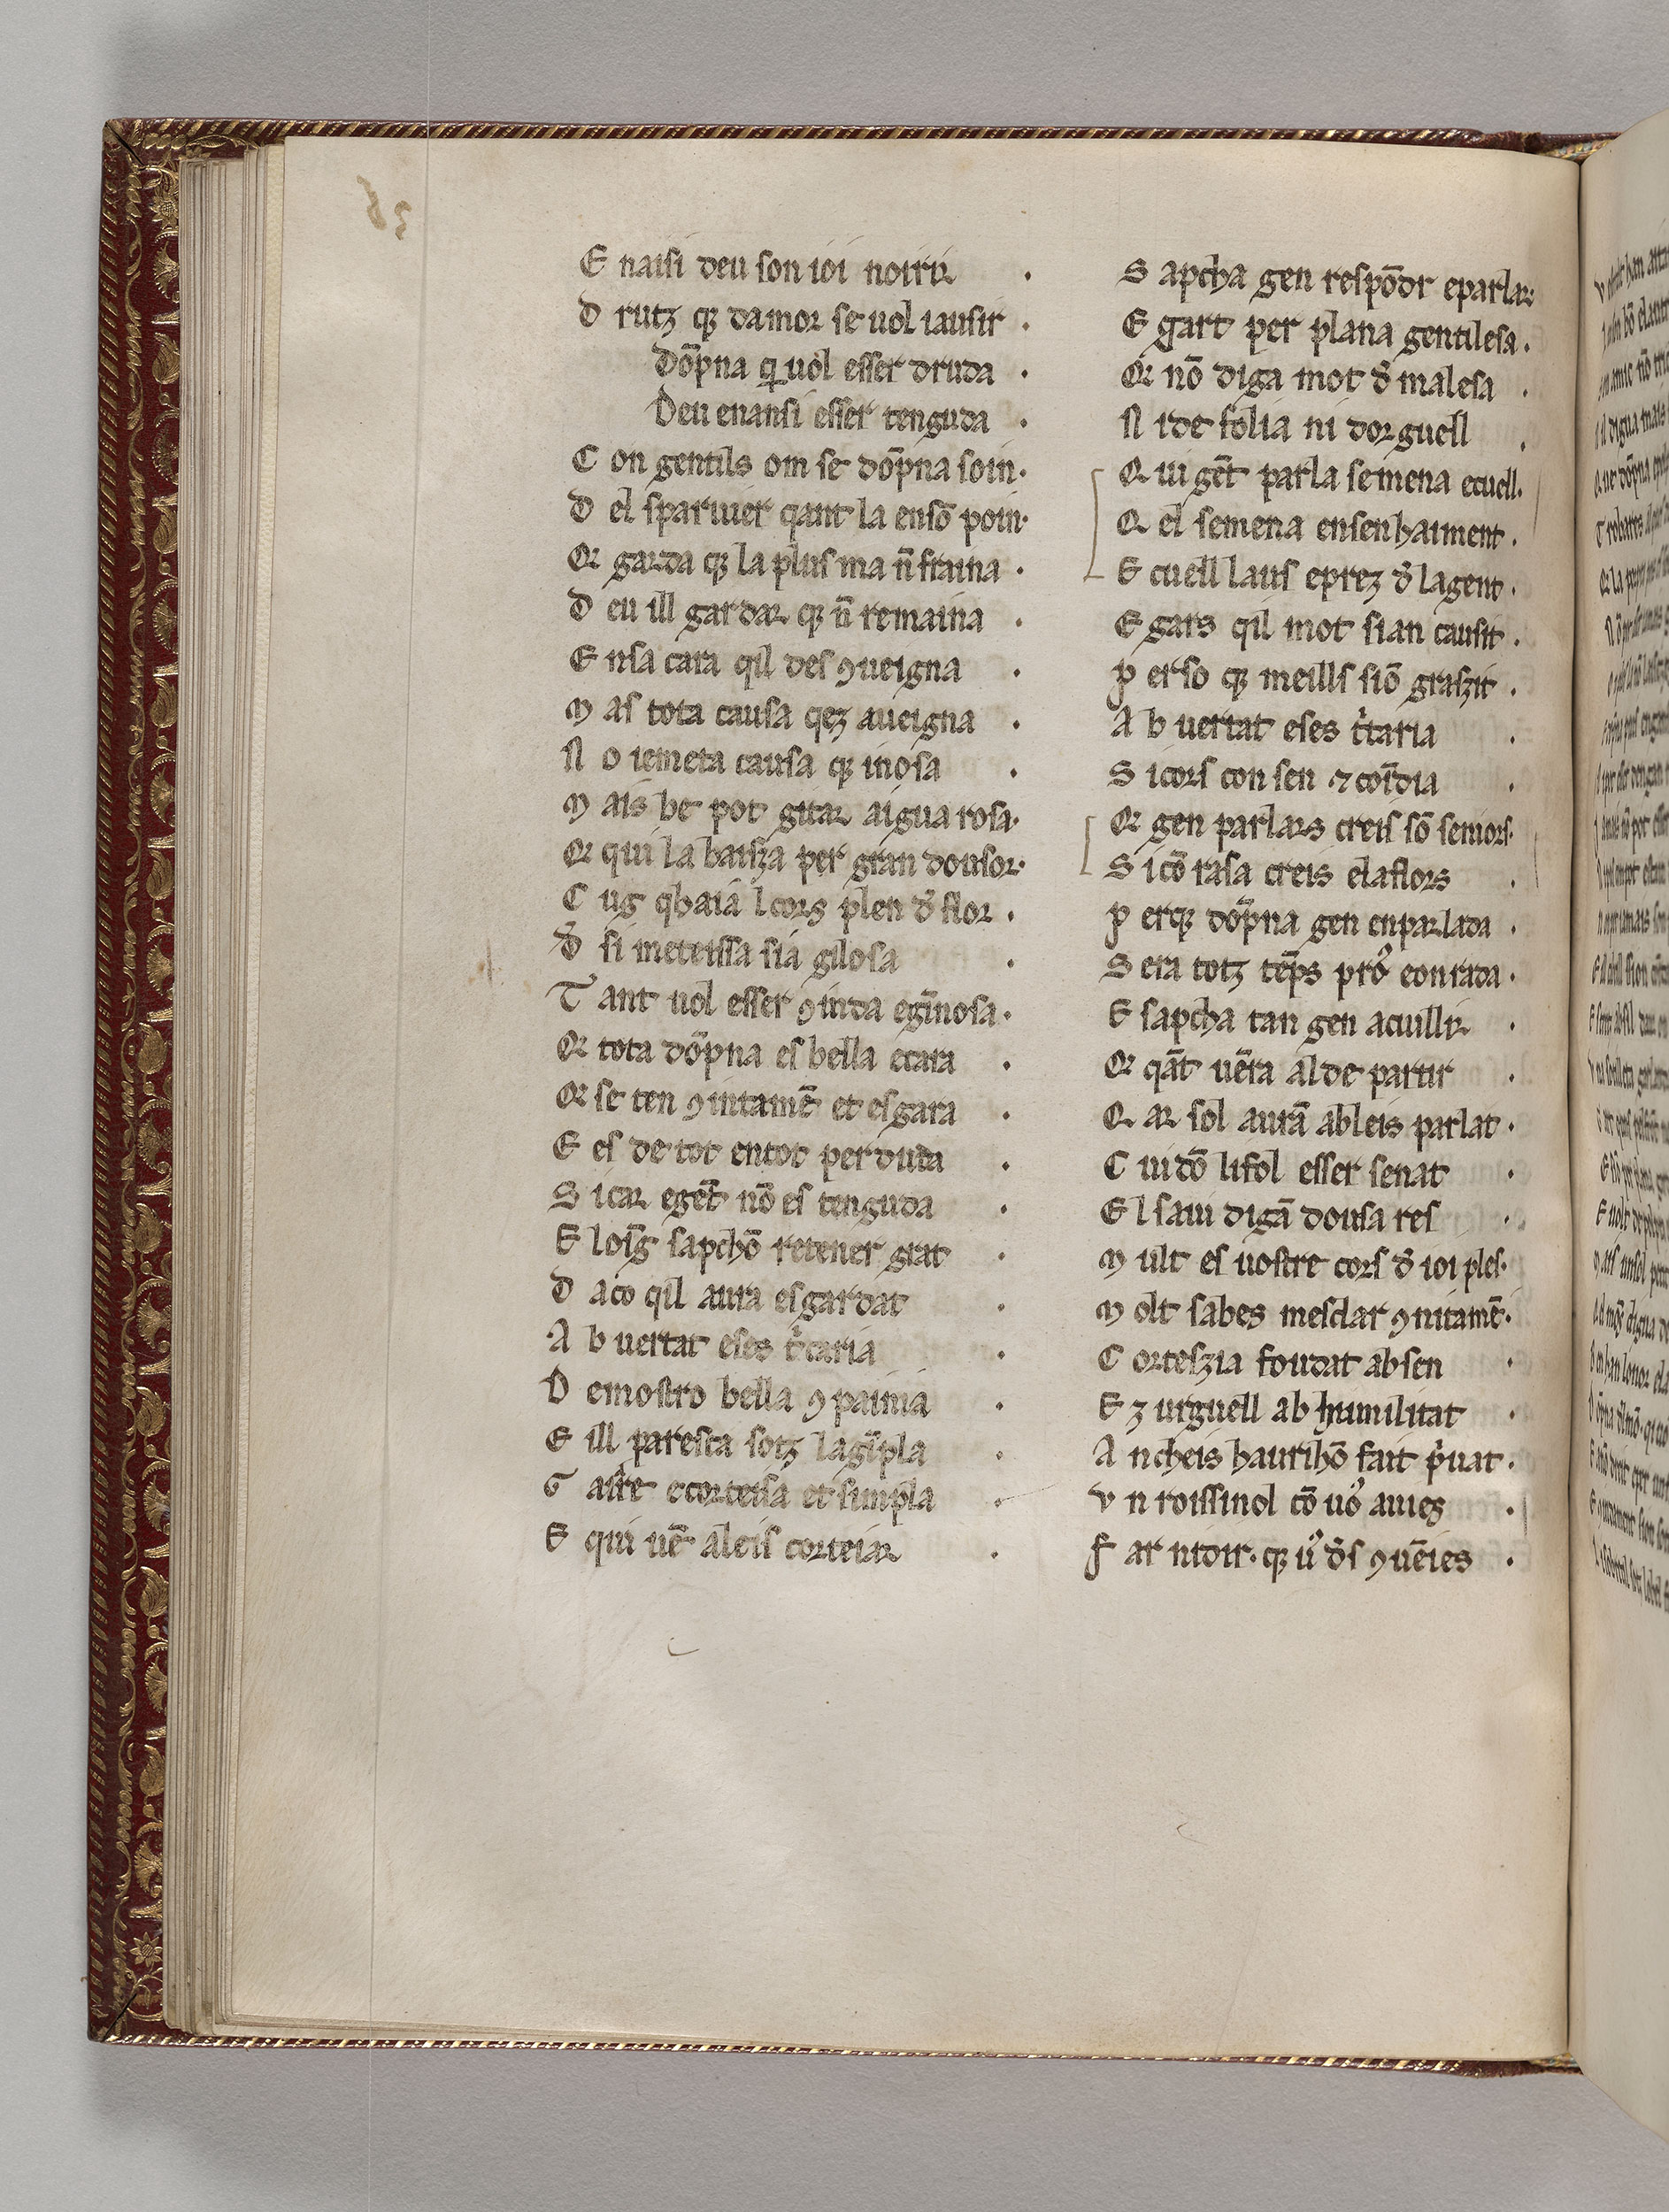 E naisi deu son ioi noirir ·
D rutz qe damor se uol iausir ·
Dōpna qi uol esser druda ·
Deu enansi esser tenguda ·
C on gentils om se dōpna soin·
D el sparuier qant la ensō poin·
Qe garda qe la plus ma n̄ fraina ·
D eu ill gardar qe n̄ remaina ·
E nsa cara qil des ꝯueigna ·
M as tota causa qez aueigna ·
N o iemeta causa qe inosa ·
M ais be pot gitar aigua rosa·
Qe qui la baisza per gran dousor·
C ug qhaia lcors plen đ flor ·
D̄ si meteissa sia gilosa ·
T ant uol esser ꝯinda eḡinosa·
Qe tota dōpna es bella ecara ·
Qe se ten ꝯintamē et esgara ·
E es de tot entot perduda ·
S icar egēt nō es tenguda ·
E loīg sapchō retener grat ·
D aco qil aura esgardat ·
A b uertat eses t'taria ·
D emostro bella ꝯpainia ·
E ill paresca sotz lagīpla ·
G aire ecorteisa et simpla ·
E qui uē aleis corteiar ·
S apcha gen respōdr eparlar·
E gart per plana gentilesa·
Qe nō diga mot đ malesa ·
N ide folia ni dorguell ·
Q ui gēt parla semena ecuell·
Q el semena ensenhaiment ·
E cuell laus eprez đ lagent ·
E gars qil mot sian causit ·
P erso qe meills siō graszit ·
A b uertat eses t'taria ·
S icors con sen ⁊ coīdia ·
Qe gen parlars creis sō seniors·
S icō rasa creis elaflors ·
P erqe dōpna gen enparlada ·
S era totz tēps proº eonrada ·
E sapcha tan gen acuillir ·
Qe qāt uēra alde partir ·
Q ar sol aurā ableis parlat ·
C uidō lifol esser senat ·
E l saui digā dousa res ·
M ult es uostre cors đ ioi ples·
M olt sabes mesclar ꝯnitamē·
C orteszia foudat absen ·
E z urguell ab humilitat ·
A ncheis haurihō fait p'uat ·
U n roissinol cō uoº auies ·
F ar nidir· qe uº đs ꝯuēies ·